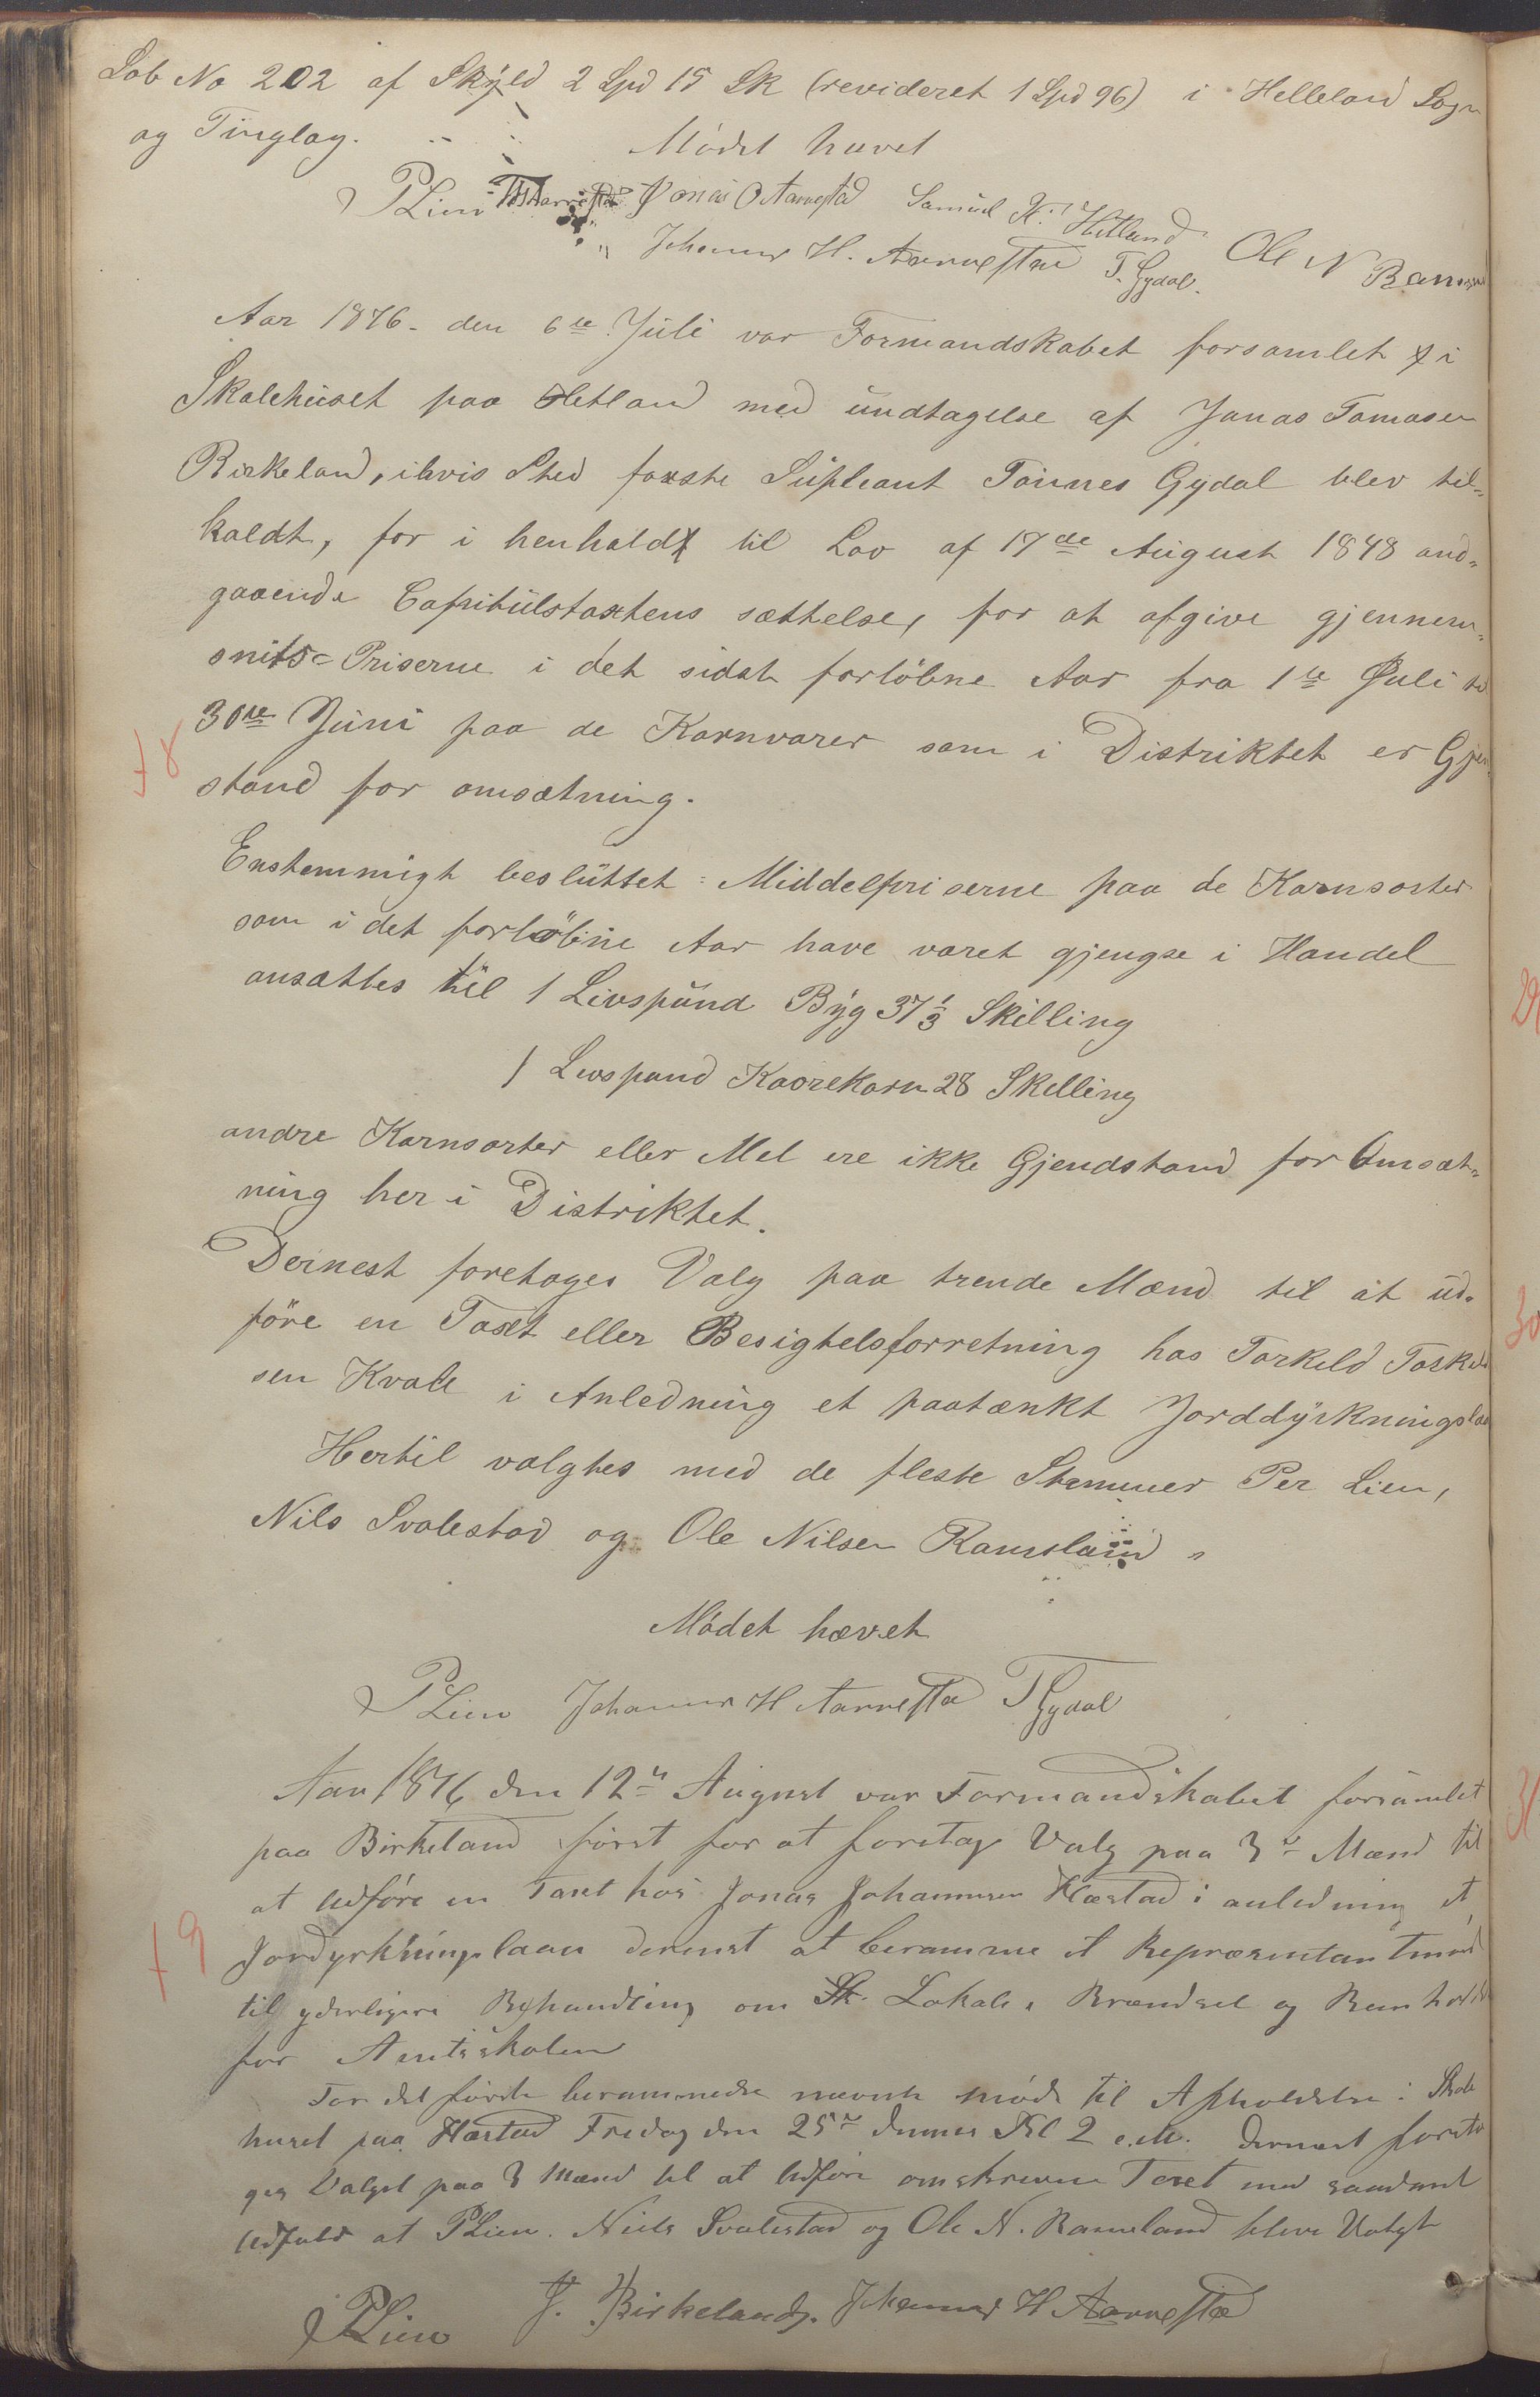 Lob No 202 af Skyld 2 Spd 15 Sk (revideret 1 Spd 96) i Helleland Sogn
og Tinglag.
Mödet hævet
PLien Jonas O Aarrestad Samüel K. Hetland
Johannes H. Aarrestad T. Gydal. Ole N Ramsland
Aar 1876. den 6te Jüli var Formandskabet forsamlet i
Skolehüset paa Hetland med ündtagelse af Jonas Tomasen
Birkeland, ihvis Sted förste Süpleant Tönnes Gydal blev til=
kaldt, for i henhold til Lov af 17de Aügust 1848 and=
gaaende Capitülstaxtens sættelse, for at afgive gjennem=
snits=Priserne i det sidst forlöbne Aar fra 1te Juli til
30te Jüni paa de Kornvarer som i Distriktet er Gjen=
stand for omsætning.
+ 8
Enstemmigt beslüttet: Middelpriserne paa de Kornsorter
som i det forlöbne Aar have været gjengse i Handel
ansættes til 1 Livspünd Byg 37 1/3 Skilling
1 Livspund Havrekorn 28 Skilling
andre Kornsorter eller Mel ere ikke Gjendstand for Omsæt=
ning her i Distriktet.
Dernest foretoges Valg paa trende Mænd til at üd=
före en Taxt eller Besigtelsforretning hos Torkeld Torkeld
sen Kvale i Anledning et paatænkt Jorddyrkningslaan
Hertil valgtes med de fleste Stemmer Per Lien,
Nils Svalestad og Ole Nilsen Ramsland "
Mödet hævet
PLien Johannes H Aarrestad T Gydal
Aar 1876 den 12te August var Formandskabet forsamlet
paa Birkeland först for at foretage Valg paa 3de Mænd til
at udföre en Taxt hos Jonas Johannesen Hæstad i anledning et
Jordyrkningslaan dernest at beramme et Repræsentantmöde
til yderligere Behandling om Lokale, Brændsel og Renhold
for Amtsskolen
+ 9
For det förste berammedes nævnte möde til Afholdelse i Skole
huset paa Hæstad Fredag den 25de dennes Kl 2 e.M. dernæst foreto
ges Valget paa 3 Mænd til at udföre omskrevne Taxt med saadant
Udfald at PLien. Niels Svalestad og Ole N. Ramsland bleve Valgt
PLien J. Birkeland. Johannes H Aarrestad
29
30
31